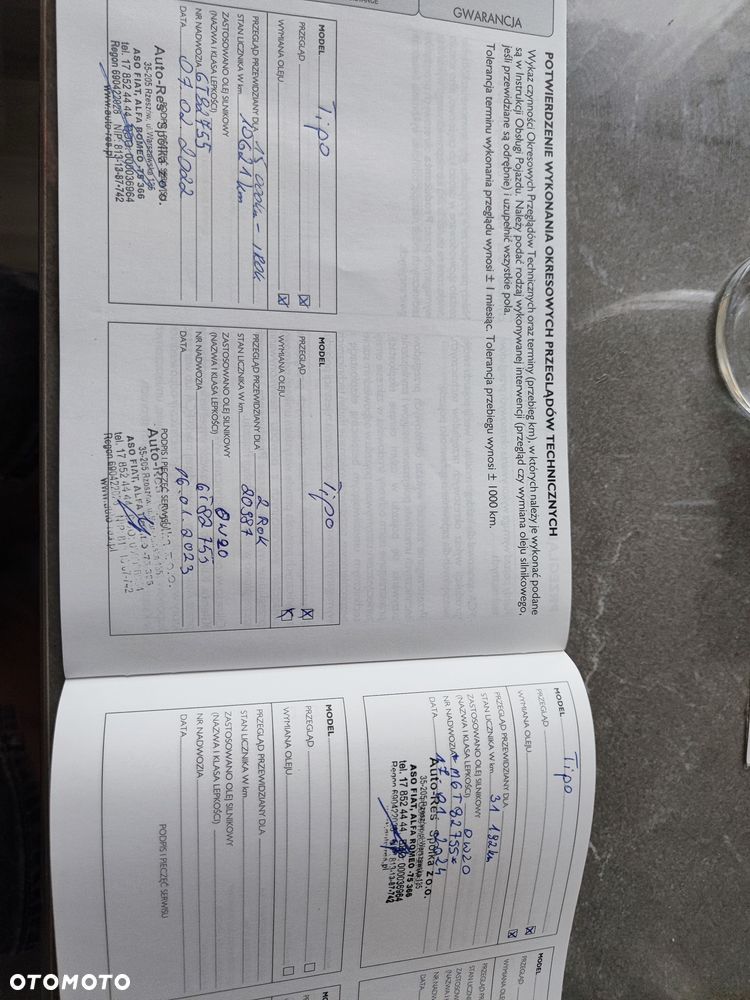 GWARANCJA
POTWIERDZENIE WYKONANIA OKRESOWYCH PRZEGLĄDÓW TECHNICZNYCH
Wykaz czynności Okresowych Przeglądów Technicznych oraz terminy (przebieg km), w których należy je wykonać podane
są w Instrukcji Obsługi Pojazdu. Należy podać rodzaj wykonywanej interwencji (przegląd czy wymiana oleju silnikowego,
jeśli przewidziane są odrębnie) i uzupełnić wszystkie pola.
Tolerancja terminu wykonania przeglądu wynosi ± 1 miesiąc. Tolerancja przebiegu wynosi ± 1000 km.
MODEL Tipo
PRZEGLĄD
WYMIANA OLEJU
PRZEGLĄD PRZEWIDZIANY DLA 15 000km - 1 ROK
STAN LICZNIKA W km 10621 km
ZASTOSOWANO OLEJ SILNIKOWY
(NAZWA I KLASA LEPKOŚCI)
NR NADWOZIA 6T82755
DATA 07 02 2022
Auto-Res Spółka z o.o.
35-205 Rzeszów, ul. Warszawska
ASO FIAT, ALFA ROMEO -75 366
tel. 17 852 44 44, BDO: 000036964
Regon 690422028 NIP: 813-13-87-742
www.auto-res.pl
MODEL Tipo
PRZEGLĄD
WYMIANA OLEJU
PRZEGLĄD PRZEWIDZIANY DLA 2 ROK
STAN LICZNIKA W km 20987
ZASTOSOWANO OLEJ SILNIKOWY
(NAZWA I KLASA LEPKOŚCI) 0W20
NR NADWOZIA 6T82755
DATA 16.01.2023
PODPIS I PIECZĘĆ SERWISU
Auto-Res
35-205 Rzeszów
ASO FIAT, ALFA
tel. 17 852 44 44
MODEL Tipo
PRZEGLĄD
WYMIANA OLEJU
PRZEGLĄD PRZEWIDZIANY DLA
STAN LICZNIKA W km 31 182km
ZASTOSOWANO OLEJ SILNIKOWY
(NAZWA I KLASA LEPKOŚCI) 0W20
NR NADWOZIA *M6T82755*
DATA 17.01.2024
Auto-Res Spółka z o.o.
35-205 Rzeszów, ul. Warszawska
ASO FIAT, ALFA ROMEO -75 366
tel. 17 852 44 44, BDO: 000036964
813-13-87-742
MODEL
PRZEGLĄD
WYMIANA OLEJU
PRZEGLĄD PRZEWIDZIANY DLA
STAN LICZNIKA W km
ZASTOSOWANO OLEJ SILNIKOWY
(NAZWA I KLASA LEPKOŚCI)
NR NADWOZIA
DATA
PODPIS I PIECZĘĆ SERWISU
MODEL
PRZEGLĄD
OTOMOTO